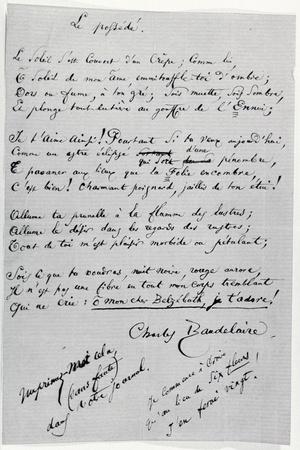 Le possédé.
Le Soleil s'est couvert d'un Crêpe; Comme lui,
O Soleil de mon âme emmitouffle toi d'ombre;
Dors ou fume, à ton gré; sois muette, sois sombre,
Et plonge tout entière au gouffre de l'Ennui;
Je t'aime ainsi! Pourtant si tu veux aujourd'hui,
Comme un astre éclipsé
d'une
qui sort pénombre,
Te pavaner aux lieux que la Folie encombre,
C'est bien! Charmant poignard, jaillis de ton étui!
Allume ta prunelle à la flamme des lustres;
Allume le désir dans les regards des rustres;
Tout de toi m'est plaisir morbide ou pétulant;
Sois ce que tu voudras, nuit noire, rouge aurore,
Il n'est pas une fibre en tout mon corps tremblant
Qui ne crie: ô mon cher Belzébuth, je t'adore!
Charles Baudelaire
Imprimez-moi cela,
(sans faute)
dans votre journal.
Je commence à croire
qu'au lieu de six fleurs
j'en ferai vingt.